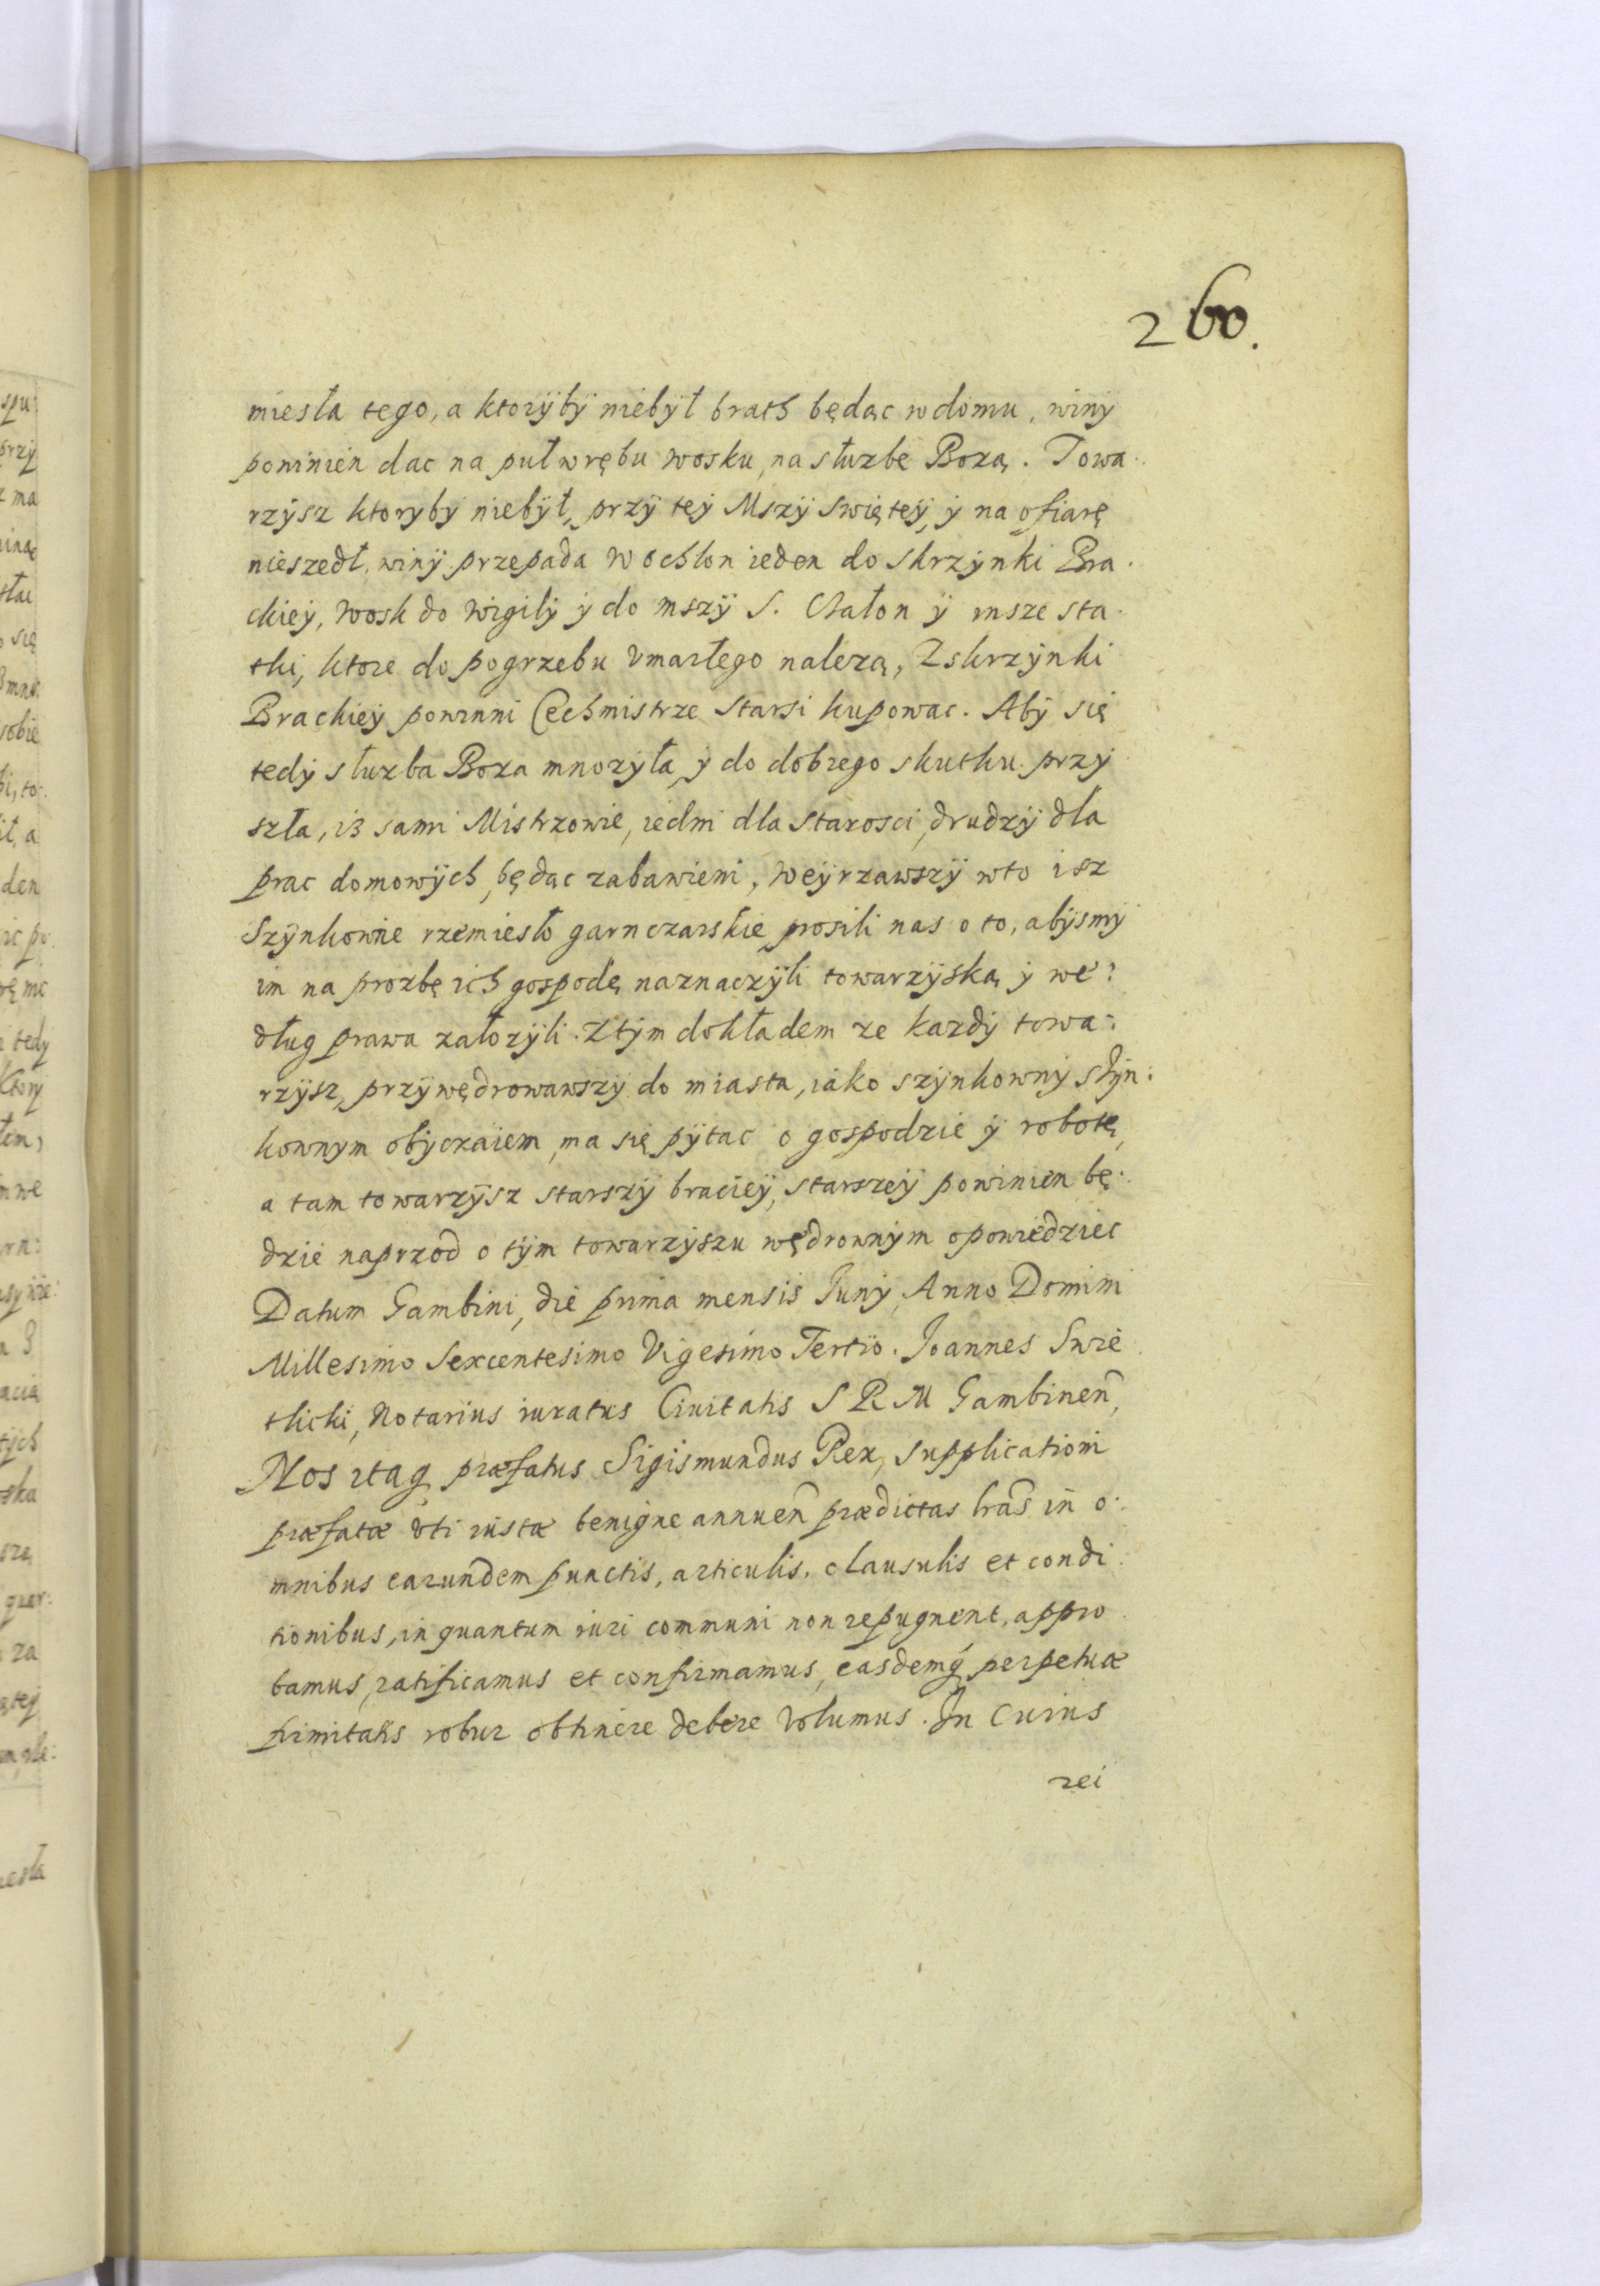 260.
miesła tego, a ktoryby niebył brath będąc w domu, winy
powinien dac na puł wrębu wosku, na służbe Bożą. Towa:
rzysz ktoryby niebył, przy tey Mszy swiętey, y na ofiarę
nieszedł, winy przepada w ochlon ieden do skrzynki Bra:
ckiey, wosk do wigily y do mszy S. Całon y insze sta:
tki, ktore do pogrzebu vmarłego nalezą, Z skrzynki
Brackiey powinni Cechmistrze starsi kupowac. Aby się
tedy służba Boza mnozyła, y do dobrego skutku przy
szła, iż sami Mistrzowie, iedni dla starosci, drudzy dla
prac domowych będąc zabawieni, weyrzawszy w to isz
Szynkowne rzemiesło garnczarskie prosili nas o to, abysmy
im na prozbę ich gospodę naznaczyli towarzyską y we:
dług prawa załozyli. Z tym dokładem ze kazdy towa:
rzysz, przywędrowawszy do miasta, iako szynkowny szyn:
kownym obyczaiem, ma się pytac o gospodzie y robotę,
a tam towarzysz starszy braciey starszey powinien bę:
dzie naprzod o tym towarzyszu wędrownym opowiedziec
Datum Gambini, die prima mensis Juny, Anno Domini
Millesimo Sexcentesimo Vigesimo Tertio. Joannes Swie
tlicki, Notarius iuratus Ciuitatis S R M Gambinen̄,
Nos itaq præfatus Sigismundus Rex, supplicationi
præfatæ vti iustæ benigne annuen̄ prædictas lras̄ in o:
mnibus earundem punctis, articulis, clausulis et condi
tionibus, in quantum iuri communi non repugnent, appro
bamus, ratificamus et confirmamus, easdemq́ perpetuæ
firmitatis robur obtinere debere volumus. In cuius
rei